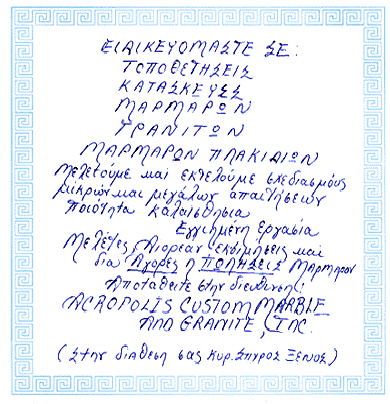 ΕΙΔΙΚΕΥΟΜΑΣΤΕ ΣΕ:
ΤΟΠΟΘΕΤΗΣΕΙΣ
ΚΑΤΑΣΚΕΥΕΣ
ΜΑΡΜΑΡΩΝ
ΓΡΑΝΙΤΩΝ
ΜΑΡΜΑΡΩΝ ΠΛΑΚΙΔΙΩΝ
Μελετούμε και εκτελούμε σχεδιασμούς
μικρών και μεγάλων απαιτήσεων
ποιότητα καλαισθησια
Εγγιημένη εργασία
Μελέτες, Διορεάν εκτιμήσεις και
δια Αγορές ή ΠΩΛΗΣΕΙΣ Μαρμαρου
Αποταθείτε στην διευθυνση:
ACROPOLIS CUSTOM MARBLE
AND GRANITE, INC.
(Στην διαθεση σας Κυρ. Σπυρος Ξενος)